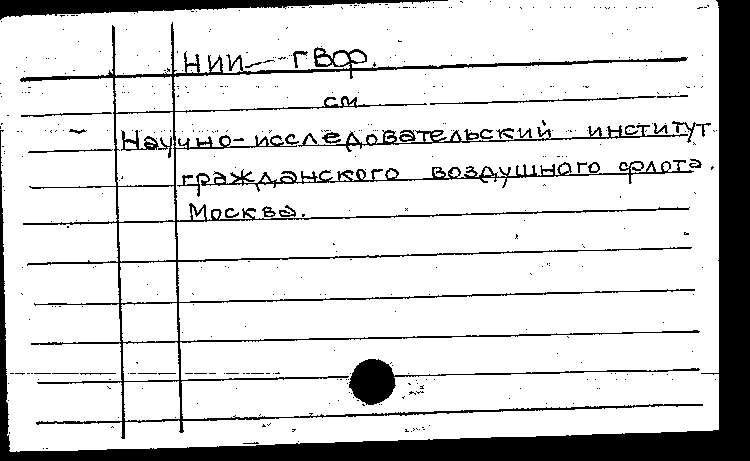 НИИ — ГВФ.
см.
Научно-исследовательский институт
гражданского воздушного флота.
Москва.